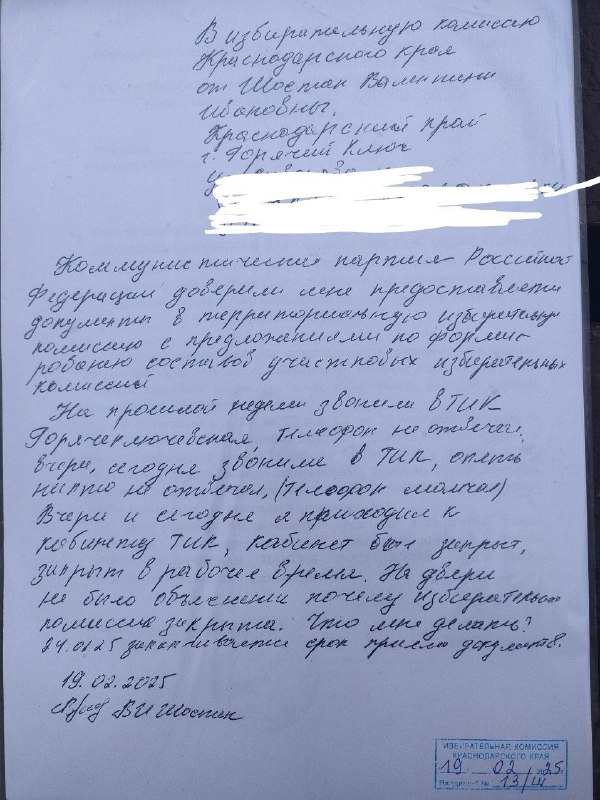 В избирательную комиссию
Краснодарского края
от Шостак Валентины
Ивановны,
Краснодарский край
г. Горячий Ключ
Коммунистическая партия Российской
Федерации доверили мне предоставлять
документы в территориальную избирательную
комиссию с предложениями по форми-
рованию составов участковых избирательных
комиссий
На прошлой недели звонили в ТИК
Горячеключевская телефон не отвечал,
вчера, сегодня звонили в ТИК, опять
никто не отвечал, (телефон молчал)
Вчера и сегодня я приходил к
кабинету ТИК, кабинет был закрыт,
закрыт в рабочее время. На двери
не было объяснения почему избирательная
комиссия закрыта. Что мне делать?
24.02.25 заканчивается срок приема документов.
19.02.2025
ВИ Шостак
ИЗБИРАТЕЛЬНАЯ КОМИССИЯ
КРАСНОДАРСКОГО КРАЯ
19 02 2025
Входящий № 13/Ш